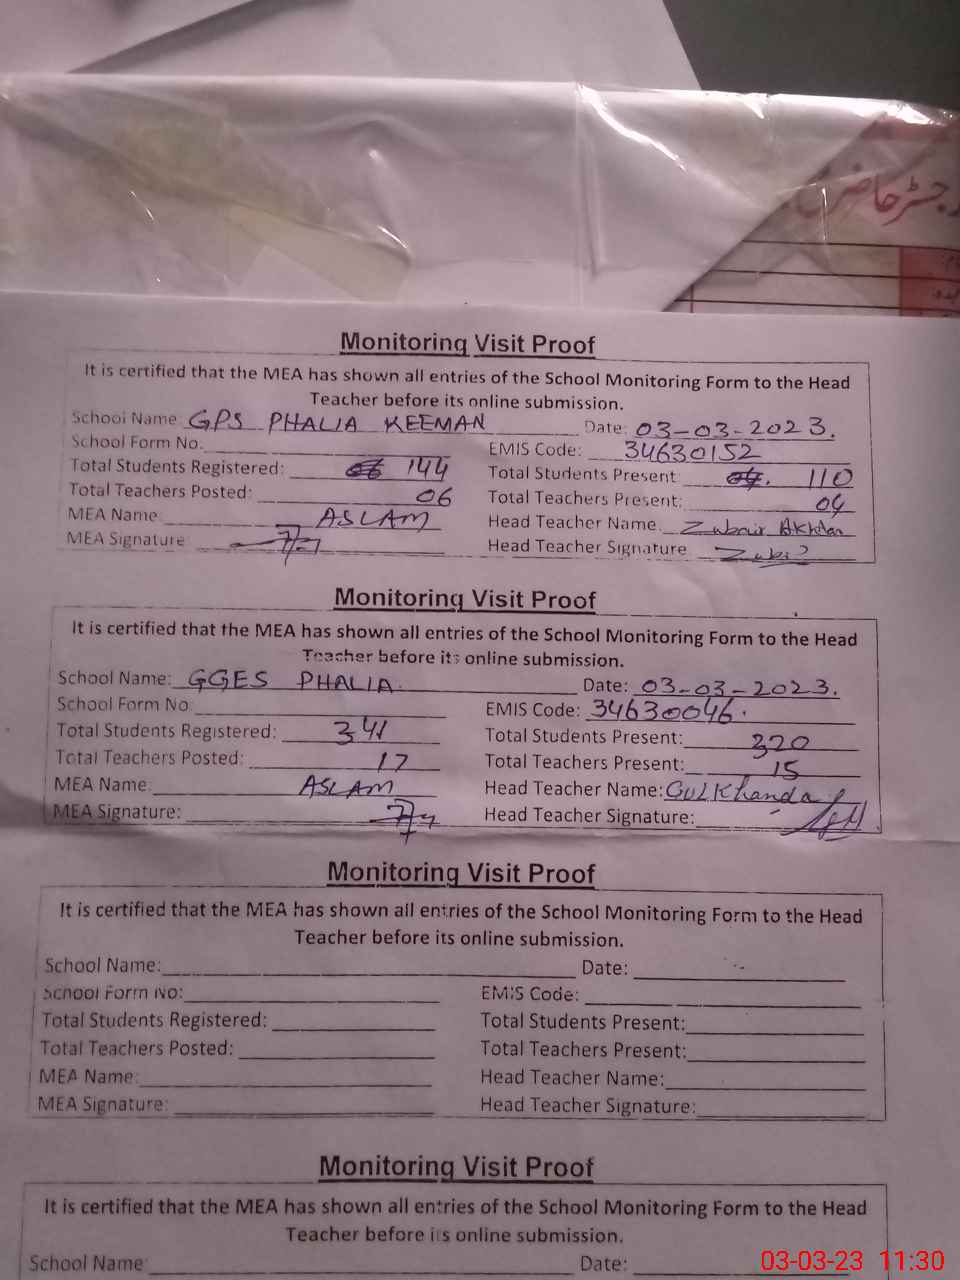 رجسٹر حاضری
Monitoring Visit Proof
It is certified that the MEA has shown all entries of the School Monitoring Form to the Head
Teacher before its online submission.
School Name: GPS PHALIA KEEMAN Date: 03-03-2023.
School Form No: EMIS Code: 34630152
Total Students Registered: 144 Total Students Present: 110
Total Teachers Posted: 06 Total Teachers Present: 04
MEA Name ASLAM Head Teacher Name. Zubair Akhtar
MEA Signature Head Teacher Signature
Monitoring Visit Proof
It is certified that the MEA has shown all entries of the School Monitoring Form to the Head
Teacher before its online submission.
School Name: GGES PHALIA. Date: 03-03-2023.
School Form No EMIS Code: 34630046.
Total Students Registered: 341 Total Students Present: 320
Total Teachers Posted: 17 Total Teachers Present: 15
MEA Name: ASLAM Head Teacher Name: Gul Khanda
MEA Signature: Head Teacher Signature:
Monitoring Visit Proof
It is certified that the MEA has shown all entries of the School Monitoring Form to the Head
Teacher before its online submission.
School Name: Date:
School Form No: EMIS Code:
Total Students Registered: Total Students Present:
Total Teachers Posted: Total Teachers Present:
MEA Name: Head Teacher Name:
MEA Signature: Head Teacher Signature:
Monitoring Visit Proof
It is certified that the MEA has shown all entries of the School Monitoring Form to the Head
Teacher before its online submission.
School Name: Date:
03-03-23 11:30